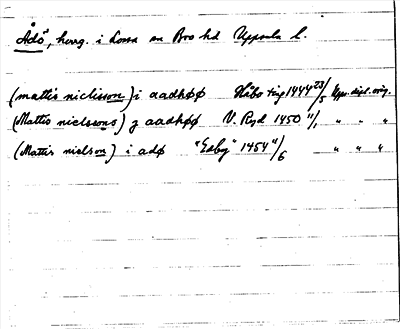 Ådö, herrg. i Lossa sn Bro hd Uppsala l.
(mattis niclisson) i aadhøø Håbo ting 1444 23/5 Uppr. dipl. orig.
(Mattis nielssons) z aadhøø V. Ryd 1450 11/1 " " "
(Mattis nielson) i adø "Edby" 1454 11/6 " " "